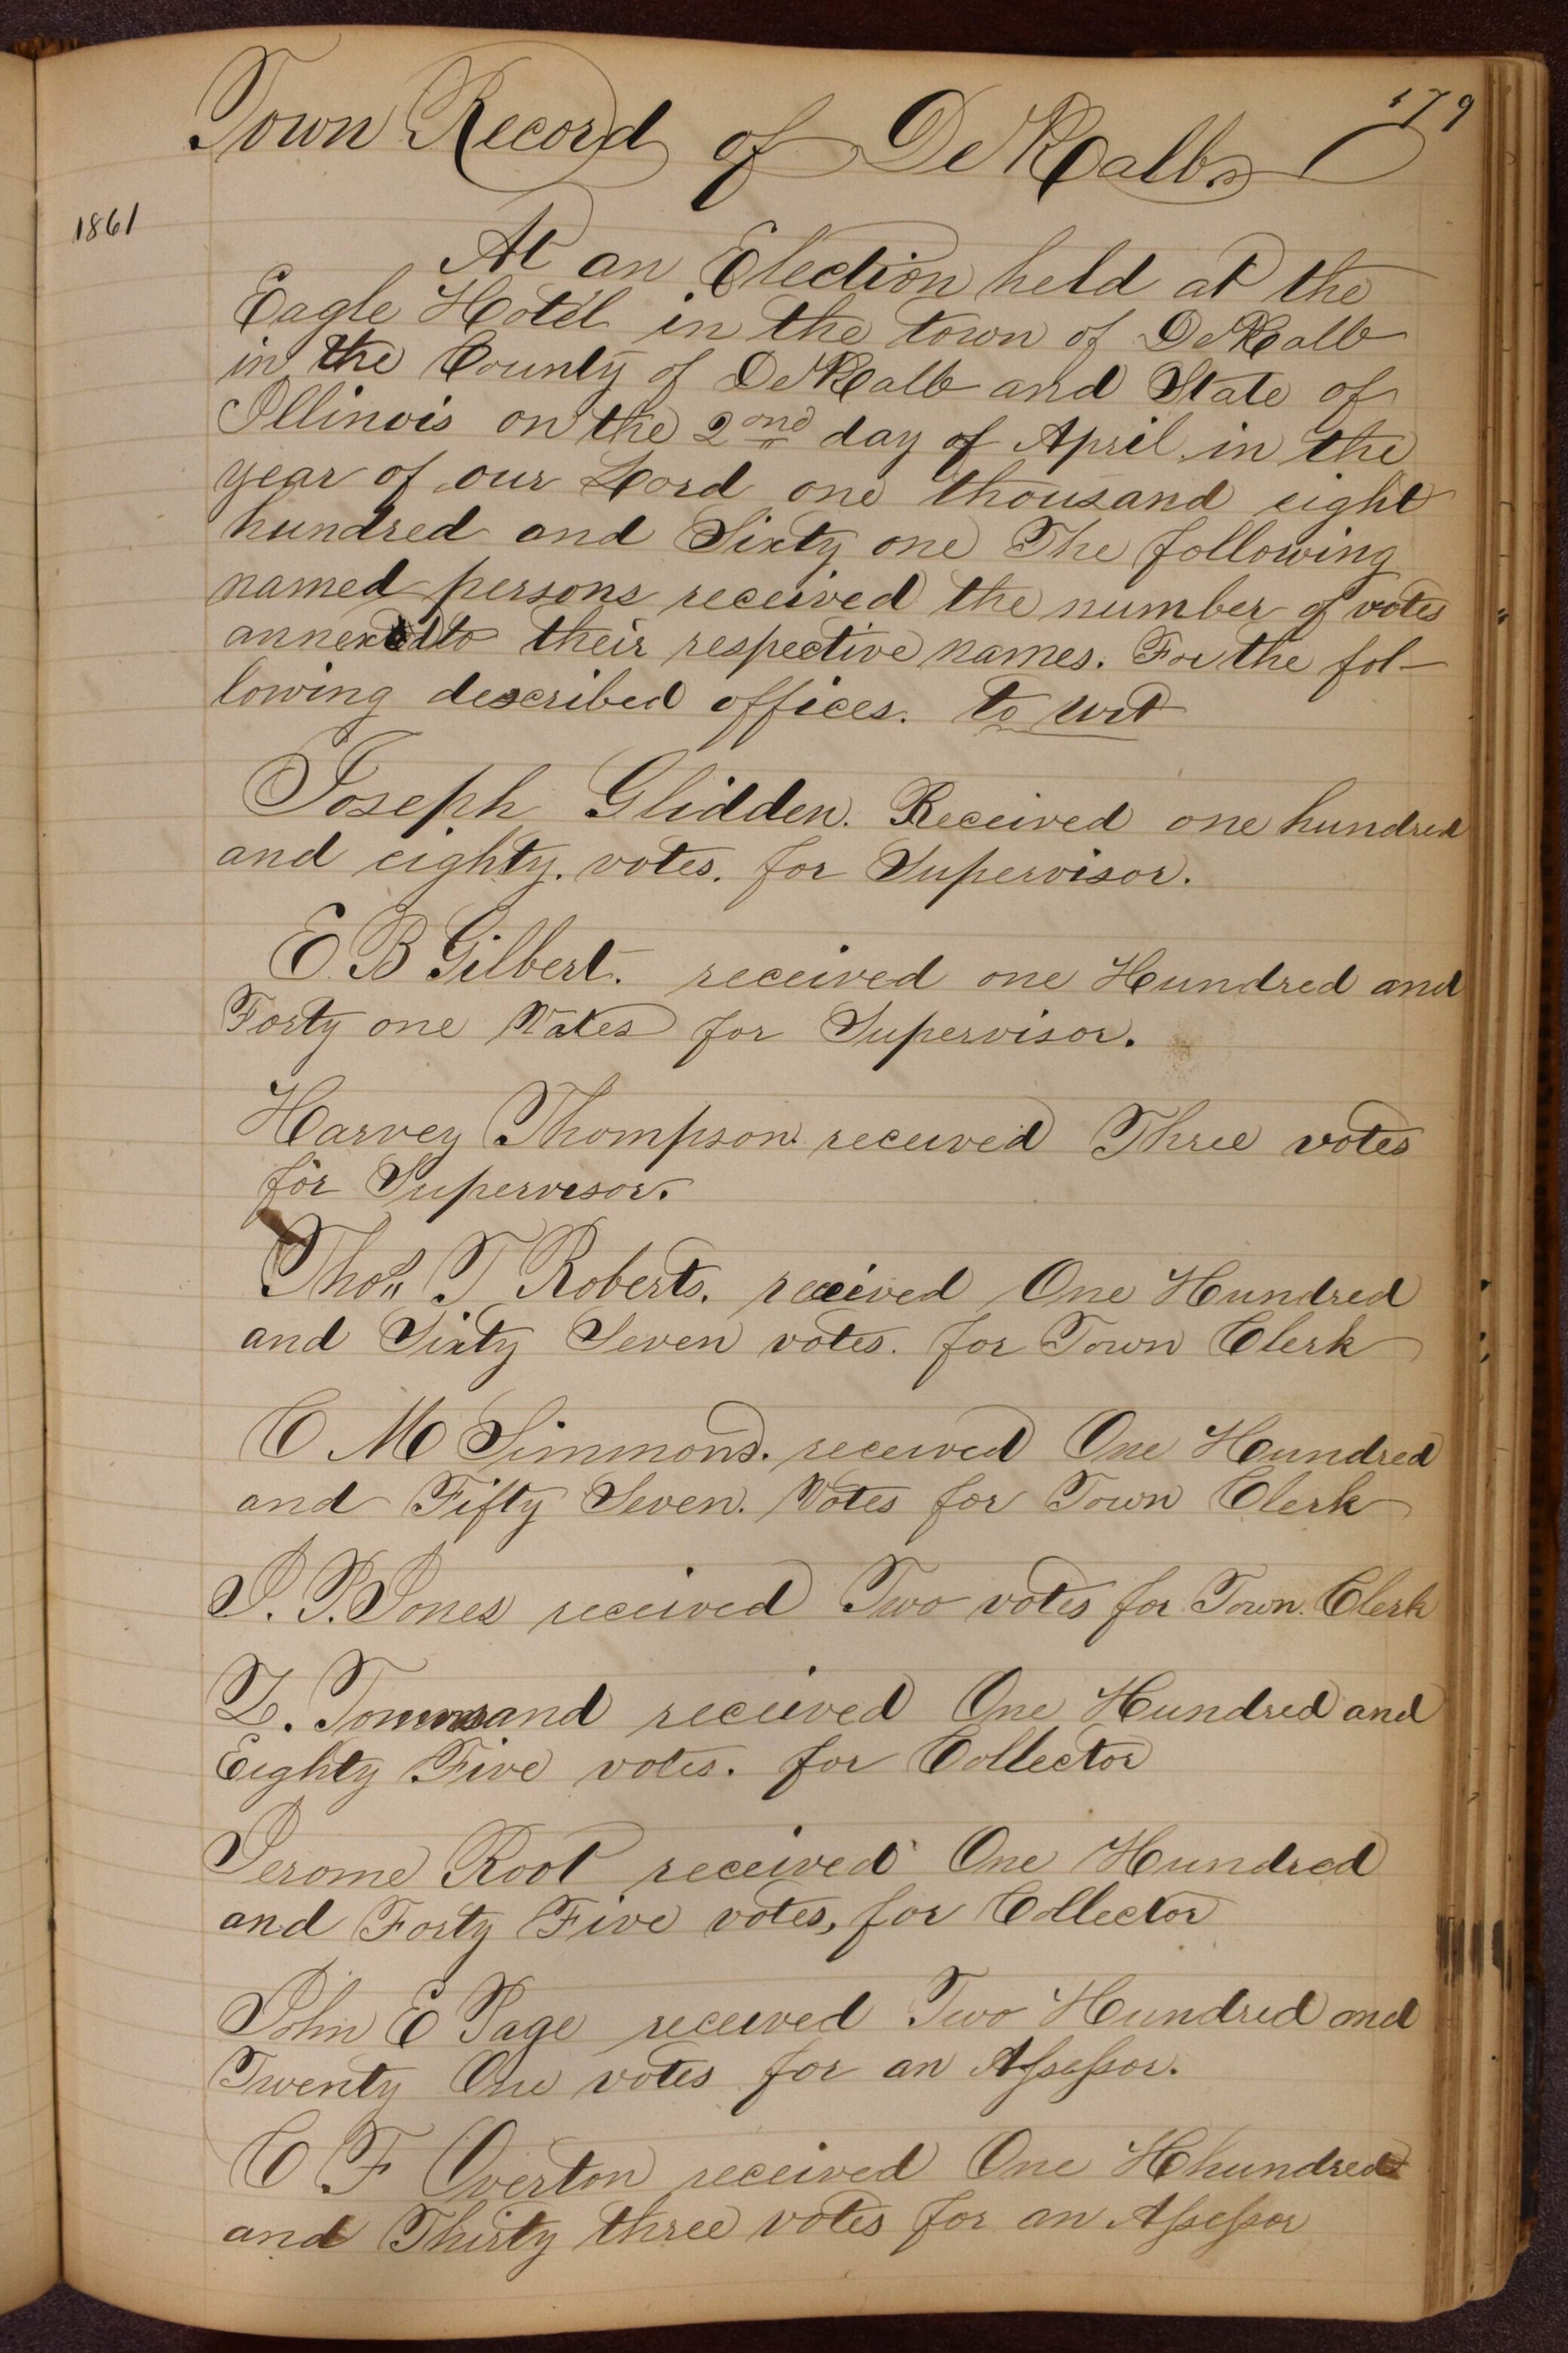 179
Town Record of DeKalb
1861
At an Election held at the
Eagle Hotel in the town of DeKalb
in the County of DeKalb and State of
Illinois on the 2ond day of April in the
year of our Lord one thousand eight
hundred and Sixty one The following
named persons received the number of votes
annexed to their respective names. For the fol-
lowing described offices. to wit
Joseph Glidden. Received one hundred
and eighty. votes. for Supervisor.
E. B Gilbert. received one Hundred and
Forty one Votes for Supervisor.
Harvey Thompson received Three votes
for Supervisor.
Thos T Roberts. received One Hundred
and Sixty Seven votes. for Town Clerk
C M Simmons. received One Hundred
and Fifty Seven. Votes for Town Clerk
J. P. Jones received Two votes for Town Clerk
Z. Townsand received One Hundred and
Eighty Five votes. for Collector
Jerome Root received One Hundred
and Forty Five votes, for Collector
John E Page received Two Hundred and
Twenty One votes for an Assessor.
C F Overton received One Hhundred
and Thirty three votes for an Assessor